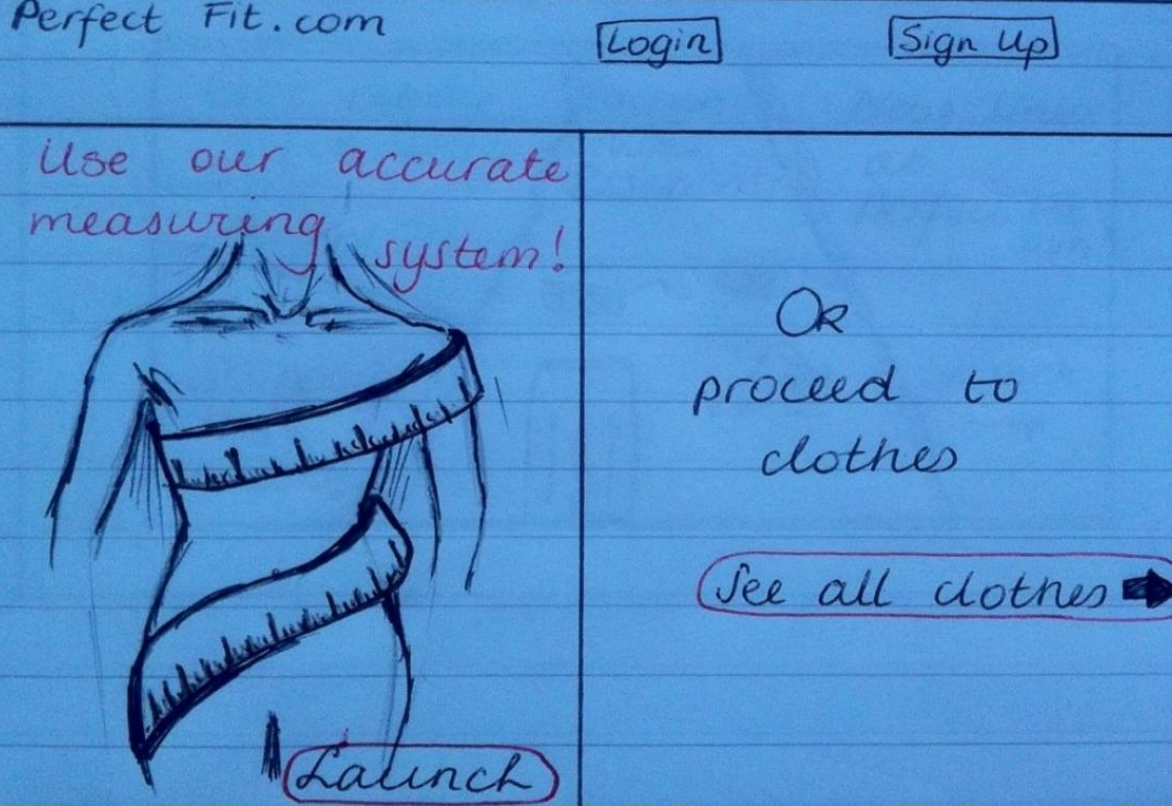 Perfect Fit.com
Login
Sign Up
Use our accurate
measuring
system!
Launch
OR
proceed to
clothes
See all clothes